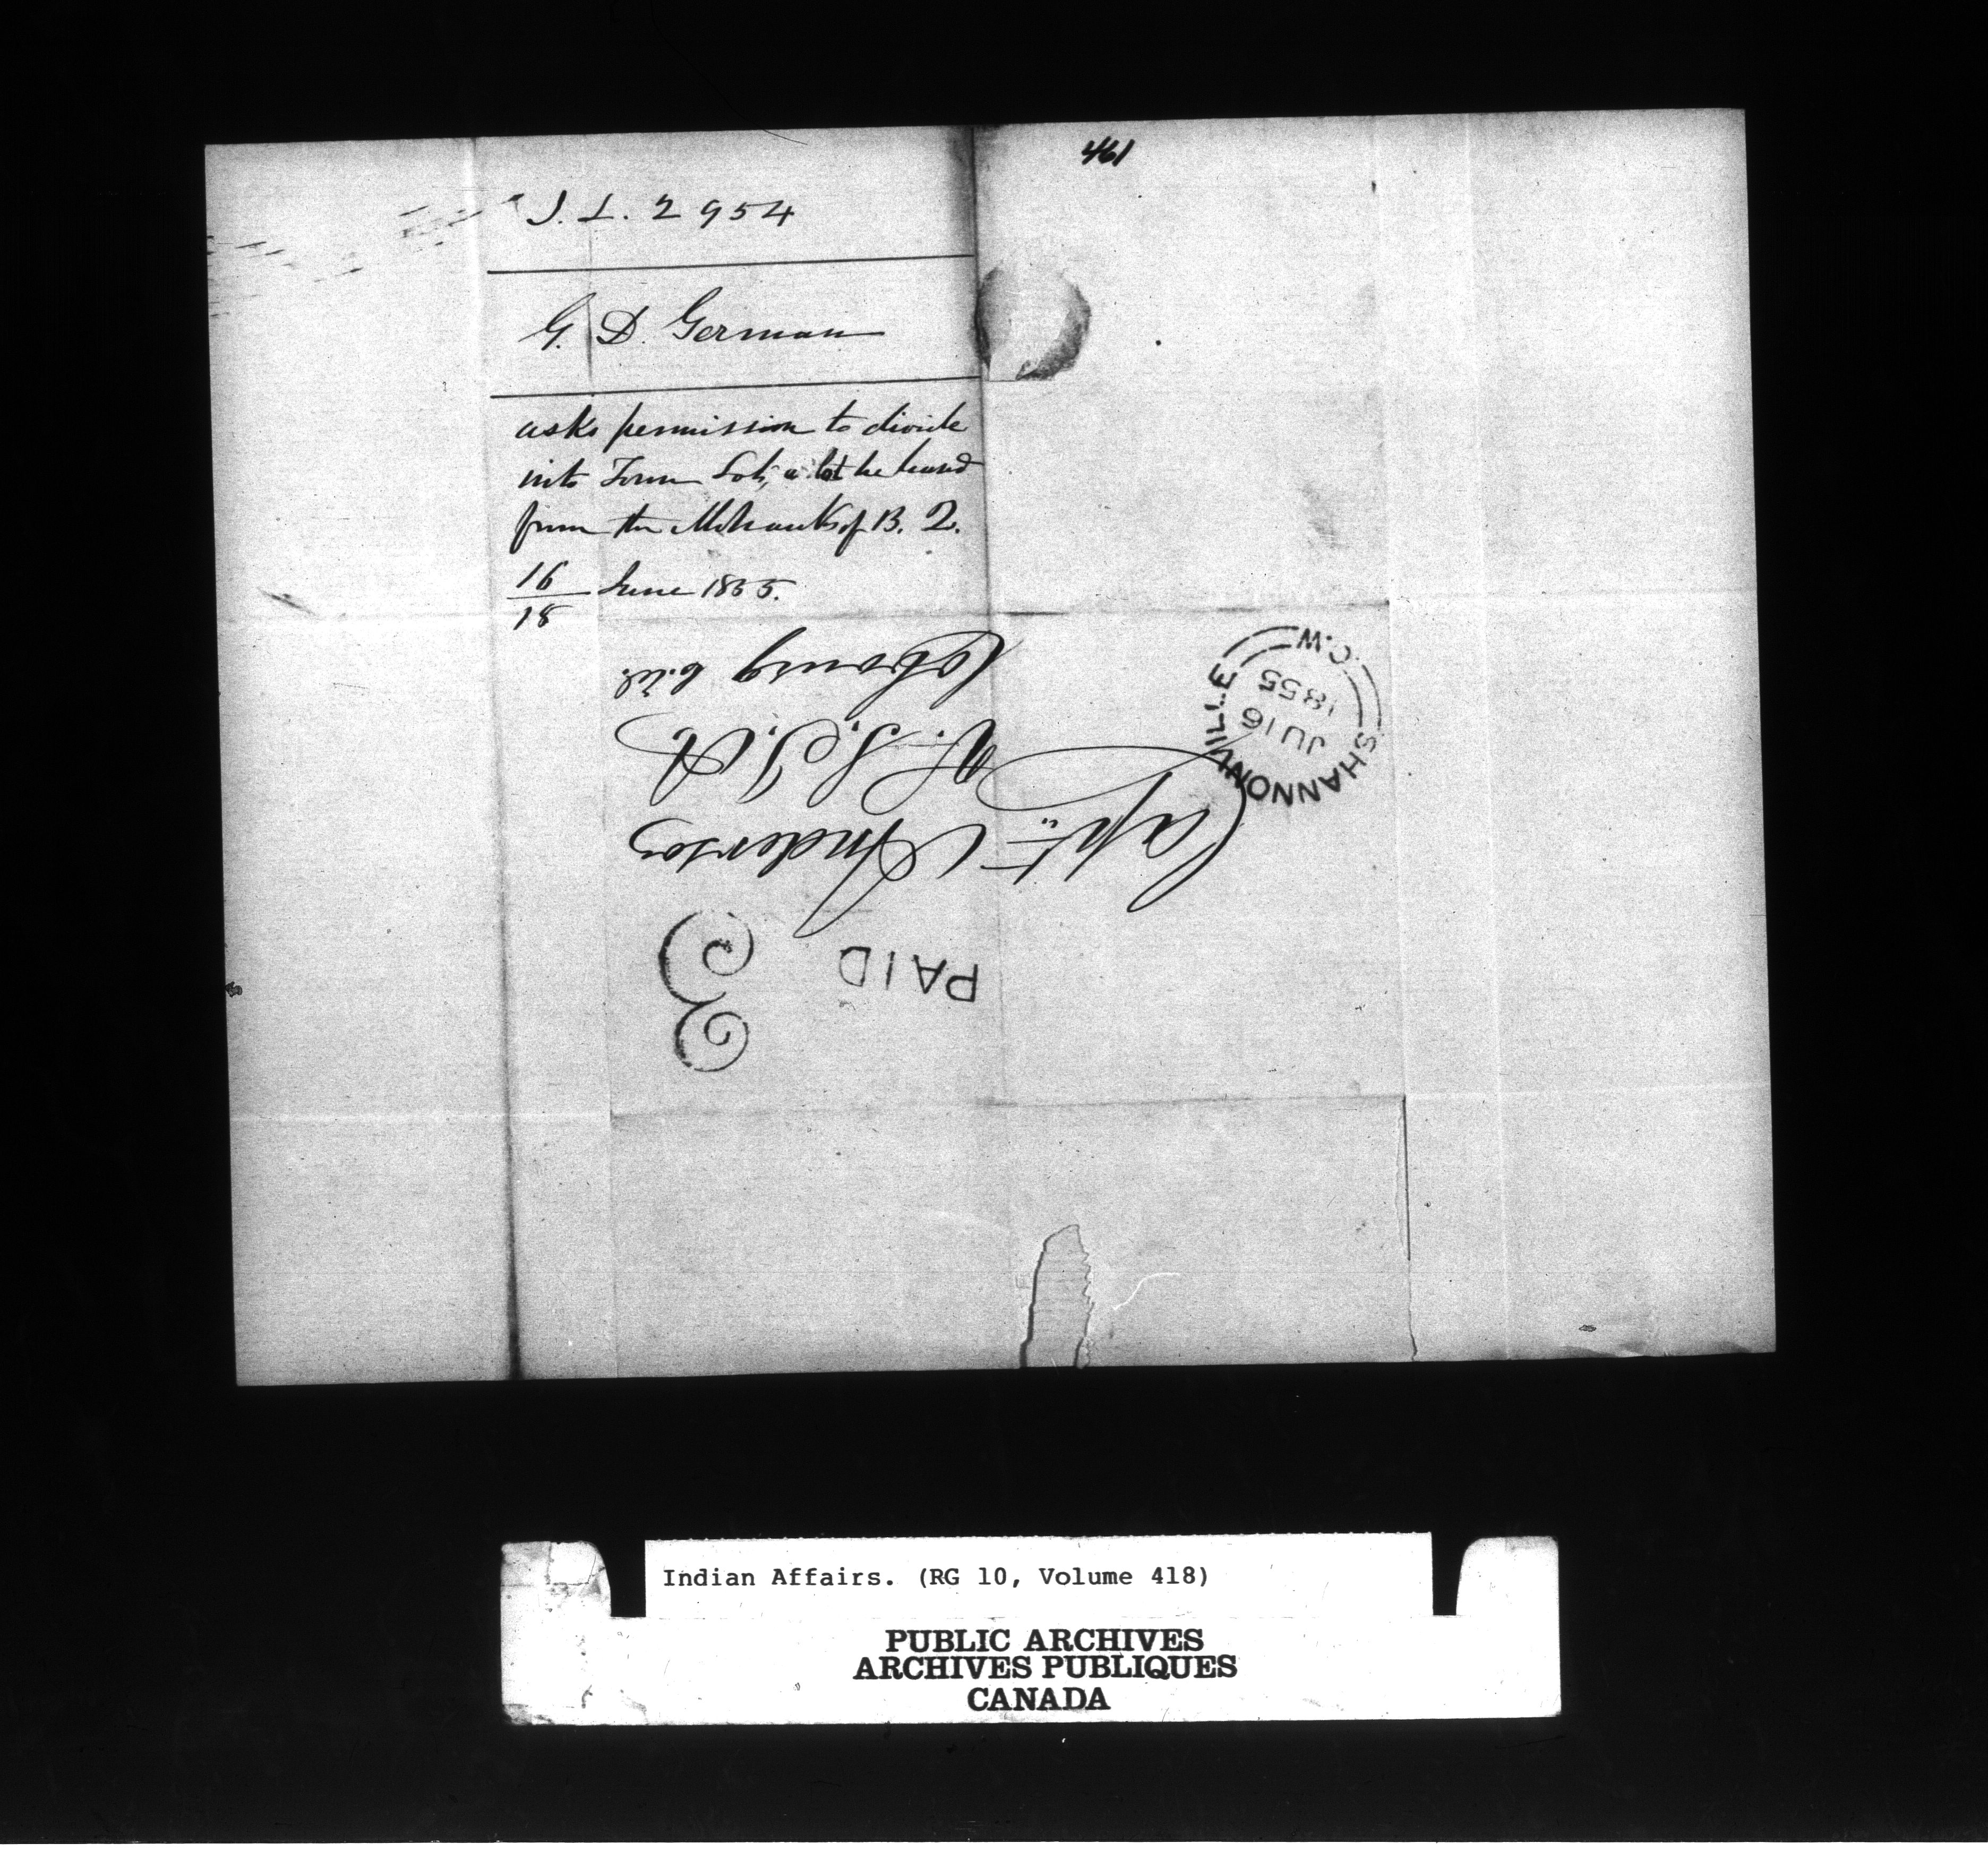 461
J. L. 2954
G. D. German
asks permission to divide
into Town Lots, a lot he leased
from the Mohawks of B. Q.
16/18 June 1855.
Cobourg C.W.
V. S. I. A
Capt. Anderson
SHANNONVILLE C.W.
JU 16
1855
PAID
3
Indian Affairs. (RG 10, Volume 418)
PUBLIC ARCHIVES
ARCHIVES PUBLIQUES
CANADA